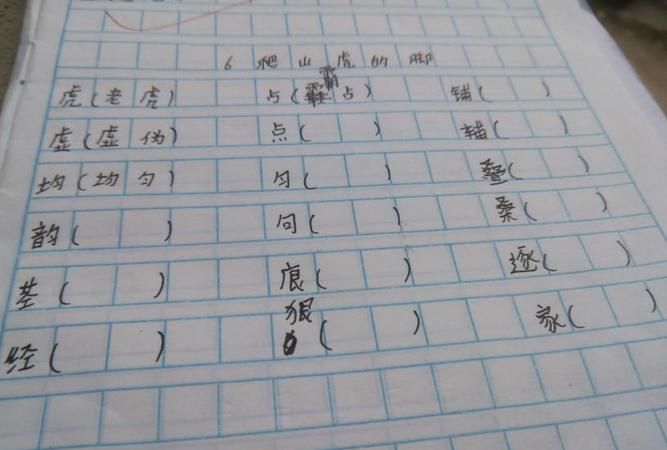 6 爬山虎的脚
虎(老虎) 占(霸占) 铺( )
虚(虚伪) 点( ) 辅( )
均(均匀) 匀( ) 叠( )
韵( ) 句( ) 桑( )
茎( ) 痕( ) 逐( )
经( ) 狠( ) 家( )